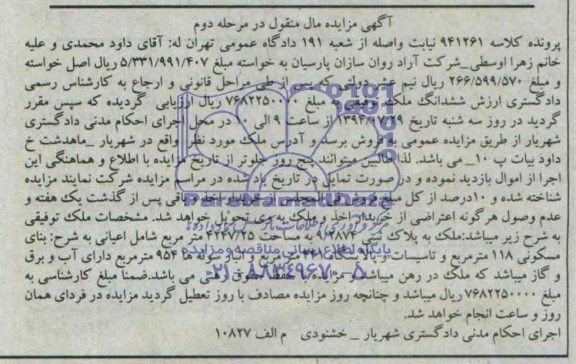 آگهی مزایده مال منقول در مرحله دوم
پرونده کلاسه ۹۴۱۲۶۱ نیابت واصله از شعبه ۱۹۱ دادگاه عمومی تهران له: آقای داود محمدی و علیه
خانم زهرا اوسطی_شرکت آراد روان سازان پارسیان به خواسته مبلغ ۵/۳۳۱/۹۹۱/۴۰۷ ریال اصل خواسته
و مبلغ ۲۶۶/۵۹۹/۵۷۰ ریال نیم عشر دولتی که پس از طی مراحل قانونی و ارجاع به کارشناس رسمی
دادگستری ارزش ششدانگ ملک توقیفی به مبلغ ۷۶۸۲۲۵۰۰۰۰ ریال ارزیابی گردیده که سپس مقرر
گردید در روز سه شنبه تاریخ ۱۳۹۴/۰۷/۲۹ از ساعت ۹ الی ۱۰ در محل اجرای احکام مدنی دادگستری
شهریار از طریق مزایده عمومی به فروش برسد و آدرس ملک مورد نظر واقع در شهریار _ماهدشت خ
داود بیات پ ۱۰_ می باشد. لذا طالبین میتوانند پنج روز جلوتر از تاریخ مزایده با اطلاع و هماهنگی این
اجرا از اموال بازدید نموده و در صورت تمایل در تاریخ یاد شده در مراسم مزایده شرکت نمایند مزایده
شناخته شده و ۱۰درصد از کل مبلغ فی المجلس از خریدار اخذ باقی پس از گذشت یک هفته و
عدم وصول هر گونه اعتراضی از خریدار اخذ و ملک به وی تحویل خواهد شد. مشخصات ملک توقیفی
به شرح زیر میباشد:ملک به پلاک ثبتی به مساحت مربع شامل اعیانی به شرح: بنای
مسکونی ۱۱۸ مترمربع و تاسیسات و مترمربع و انبار سوله ها ۹۵۴ مترمربع دارای آب و برق
و گاز میباشد که ملک در رهن میباشد مزایده با حفظ حقوق رهنی می باشد.ضمنا مبلغ کارشناسی به
مبلغ ۷۶۸۲۲۵۰۰۰۰ ریال میباشد و چنانچه روز مزایده مصادف با روز تعطیل گردید مزایده در فردای همان
روز و ساعت انجام خواهد شد.
اجرای احکام مدنی دادگستری شهریار _ خشنودی م الف ۱۰۸۲۷
پایگاه اطلاع رسانی مناقصه و مزایده
۰۲۱-۸۸۳۴۹۶۷۰-۵